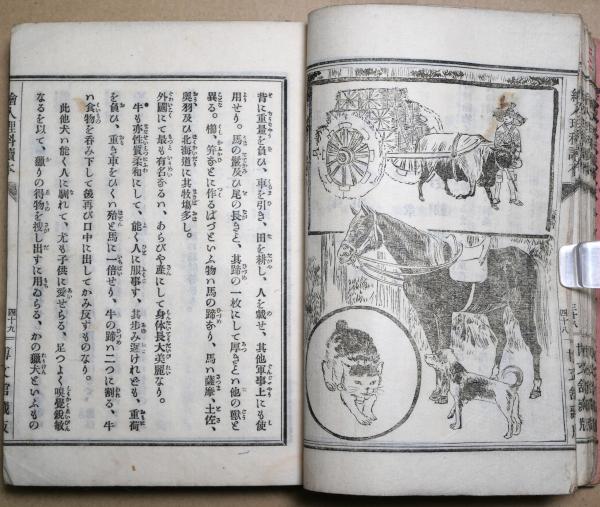 背に重量を負ひ、車を引き、田を耕し、人を載せ、其他軍事上にも使
用せり。馬の鬣及び尾の長きと、其蹄の一枚にして厚きとい他の獣と
異る。櫛、笄などに作るばづといふ物い馬の蹄なり、馬い薩摩、土佐、
奥羽及び北海道に其牧塲多し。
外國にて最も有名なるい、あらびや産にして身体長大美麗なり。
牛も亦性質柔和にして、能く人に服事す、其歩み遅けれども、重荷
を負ひ、重き車をひくい殆と馬に一倍せり、牛の蹄い二つに割る、牛
い食物を呑み下して後再び口中に出してかみ反すものなり。
此他犬い能く人に馴れて、尤も子供に愛せらる、足つよく嗅覺鋭敏
なるを以て、獵りの得物を捜し出すに用ゐらる、かの獵犬といふもの
繪入理科讀本
四十九
博文館藏版